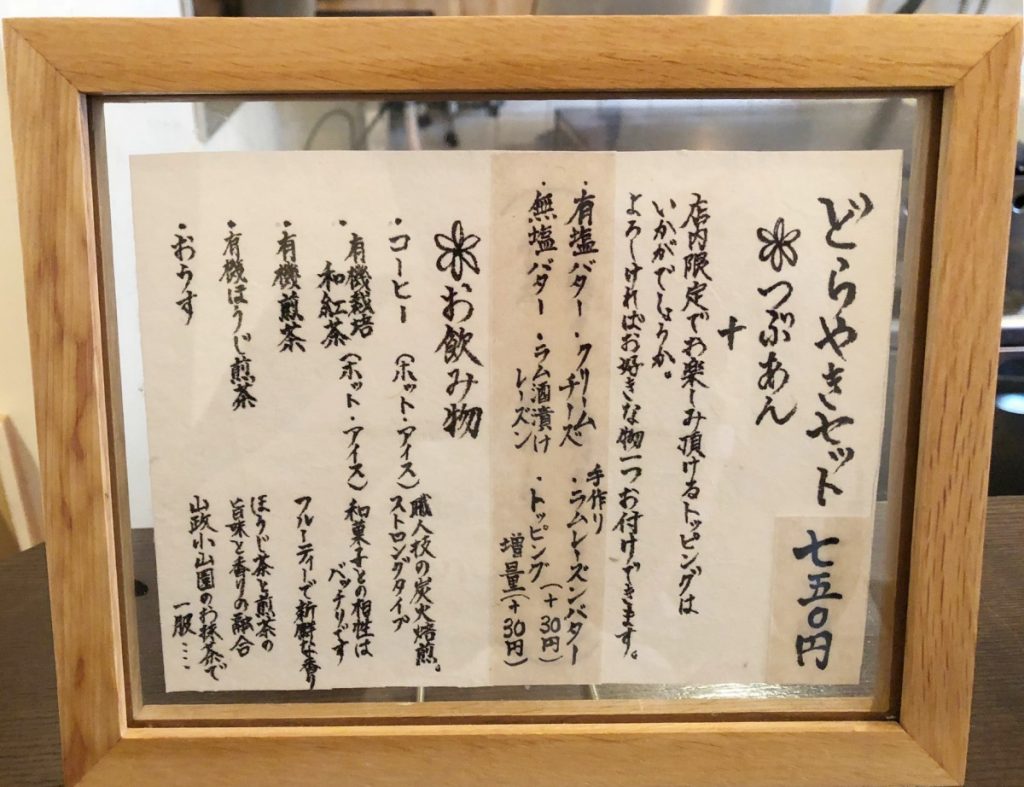 どらやきセット 七五〇円
つぶあん
+
店内限定でお楽しみ頂けるトッピングは
いかがでしょうか。
よろしければお好きな物一つお付けできます。
・有塩バター ・クリームチーズ 手作り・ラムレーズンバター(+30円)
・無塩バター ・ラム酒漬けレーズン ・トッピング増量(+30円)
お飲み物
・コーヒー (ホット・アイス) 職人技の炭火焙煎。
ストロングタイプ
・有機栽培
和紅茶 (ホット・アイス) 和菓子との相性は
バッチリです
・有機煎茶 フルーティーで新鮮な香り
・有機ほうじ煎茶 ほうじ茶と煎茶の
旨味と香りの融合
・おうす 山政小山園のお抹茶で
一服……